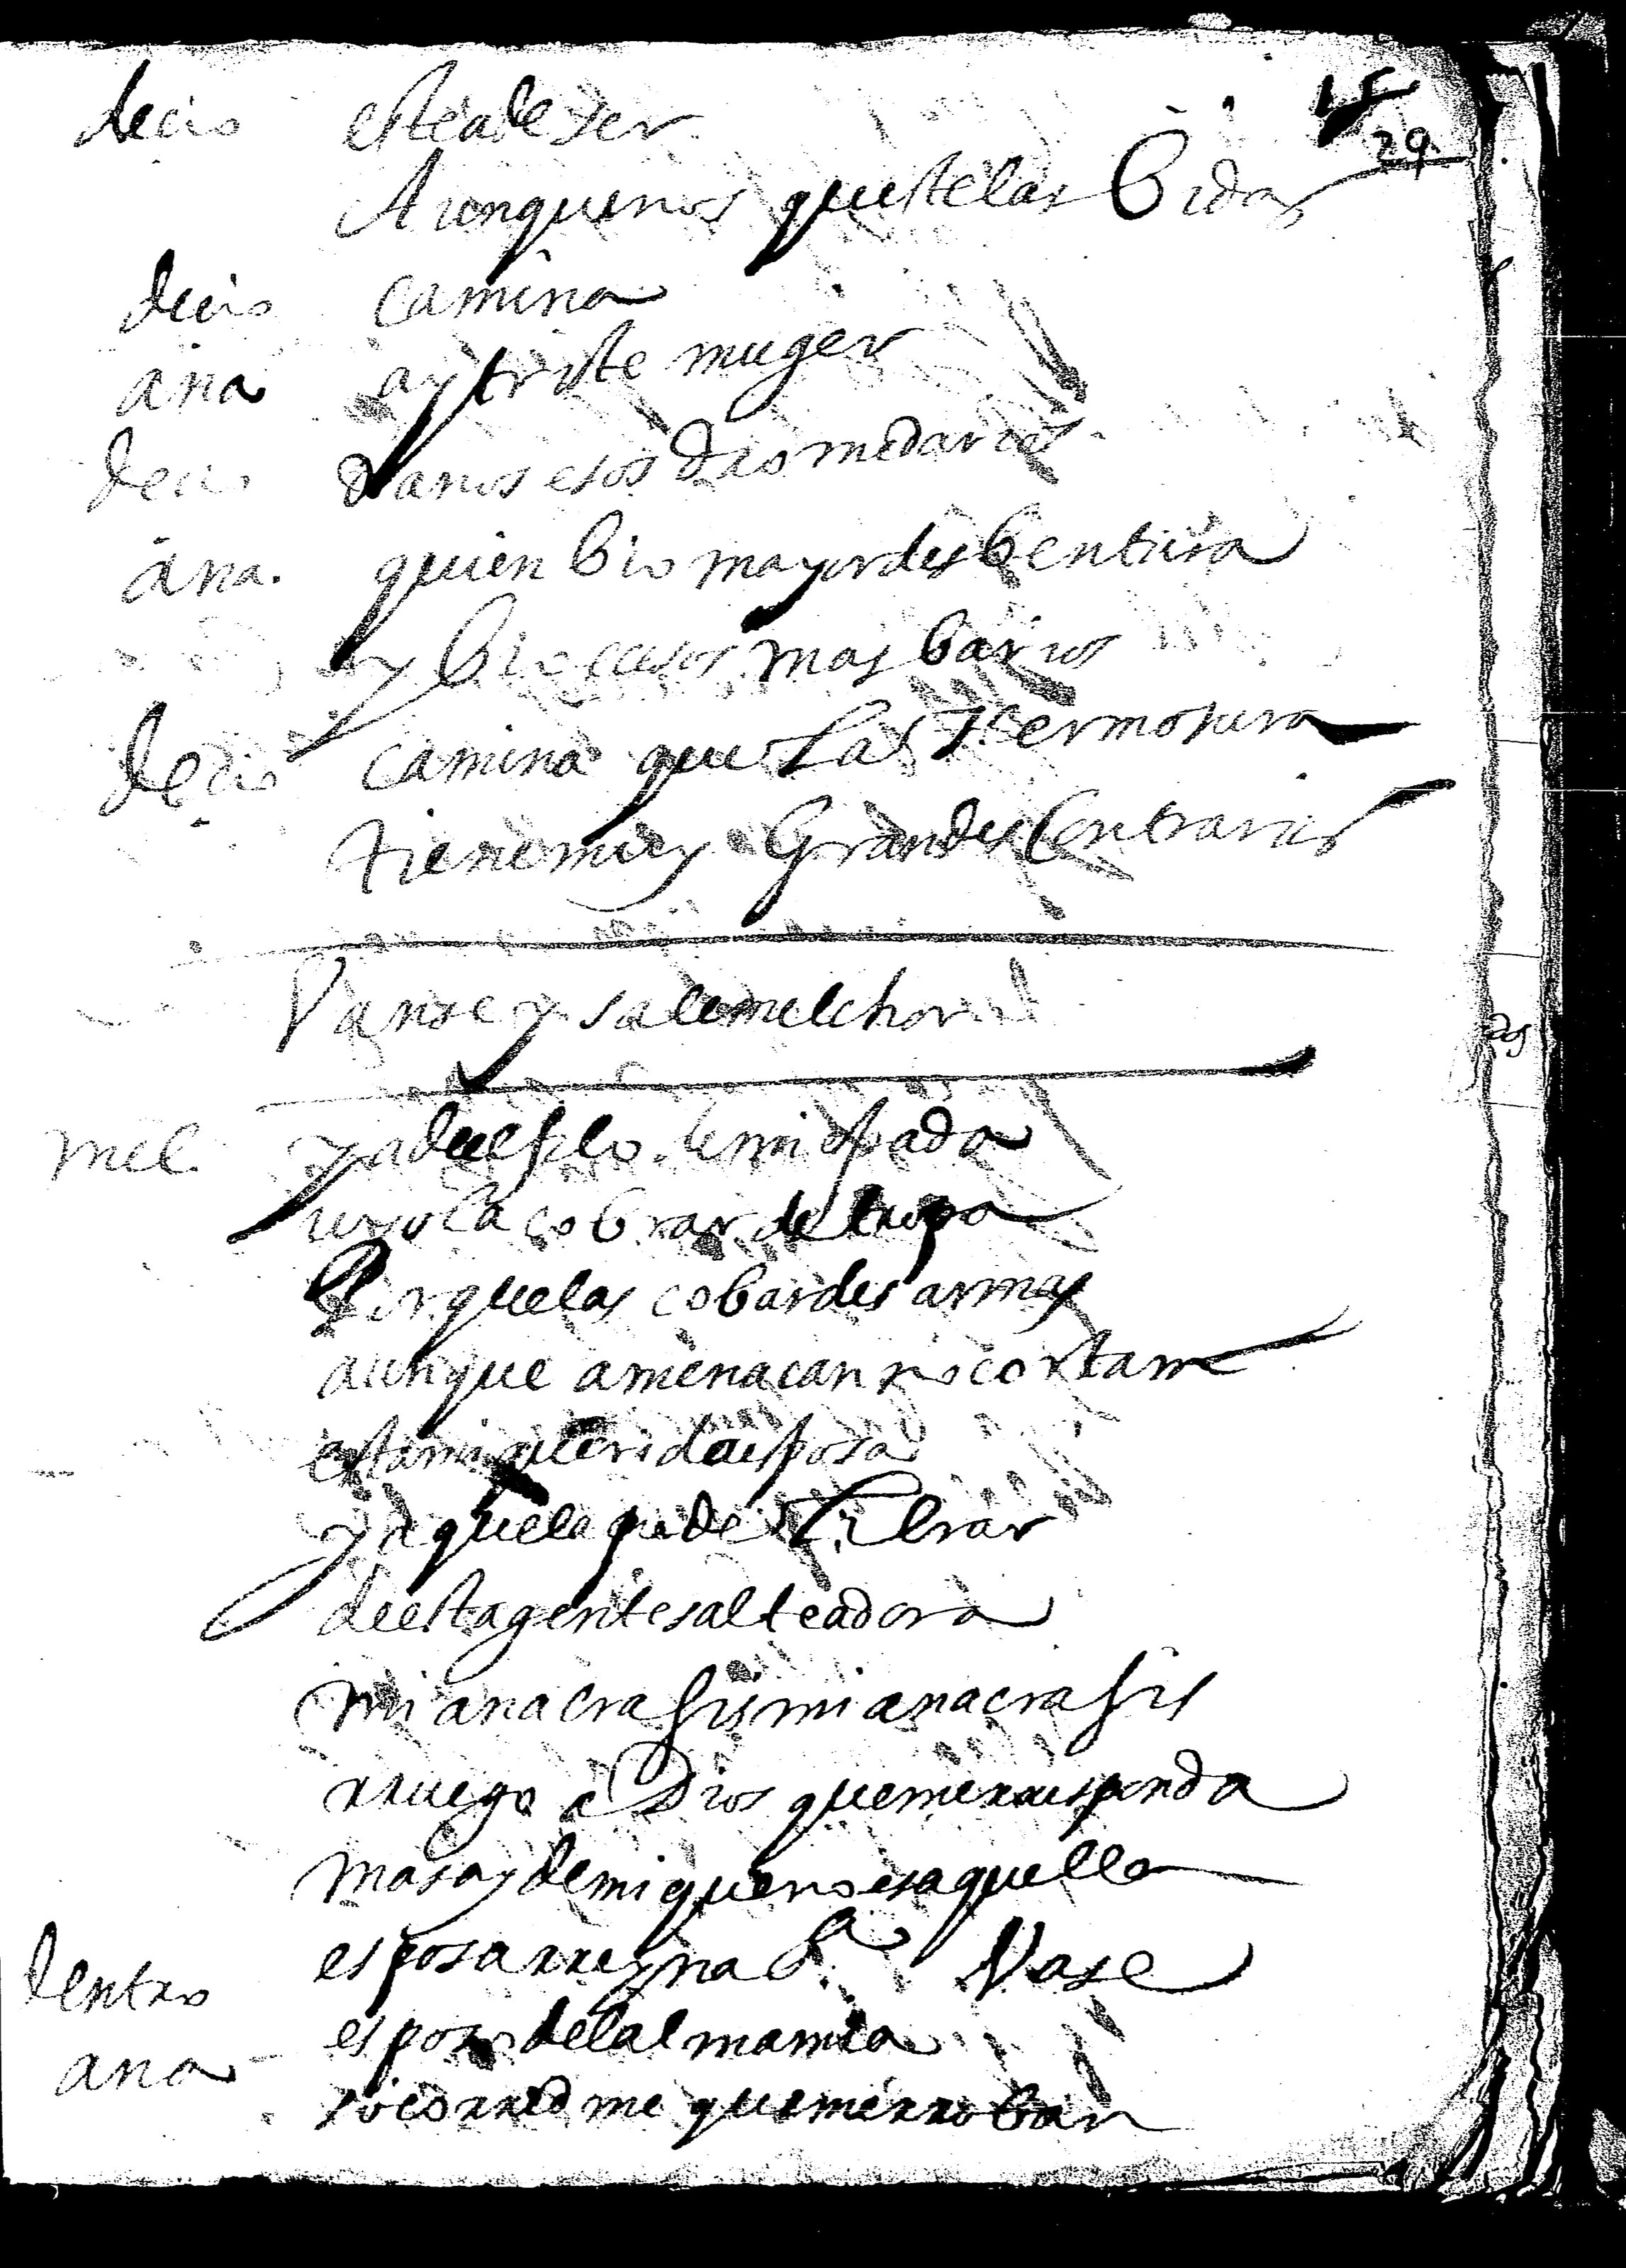 29
decio este a de ser
Aunque nos queste las bidas
decio camina
ana ay triste muger
decio vamos esos dromedarios
ana. quien bio mayor desbentura
y bio casos mas barios
decio camina que las hermosura
tiene muy Grandes Contrarios
Vanse y sale melchor
mel. ya del filo de mi espada
cobrar de tropa
Porque las cobardes armas
aunque amenacan no cortan
esta mi querida esposa
ya que la pude librar
de esta gente salteadora
mi anacrafis mi anacrafis
rruego a Dios que me rresponda
mas ay de mi que no es aquella
esposa rreyna Sa Vase
dentro
ana esposo del alma mia
socorred me que me rroban